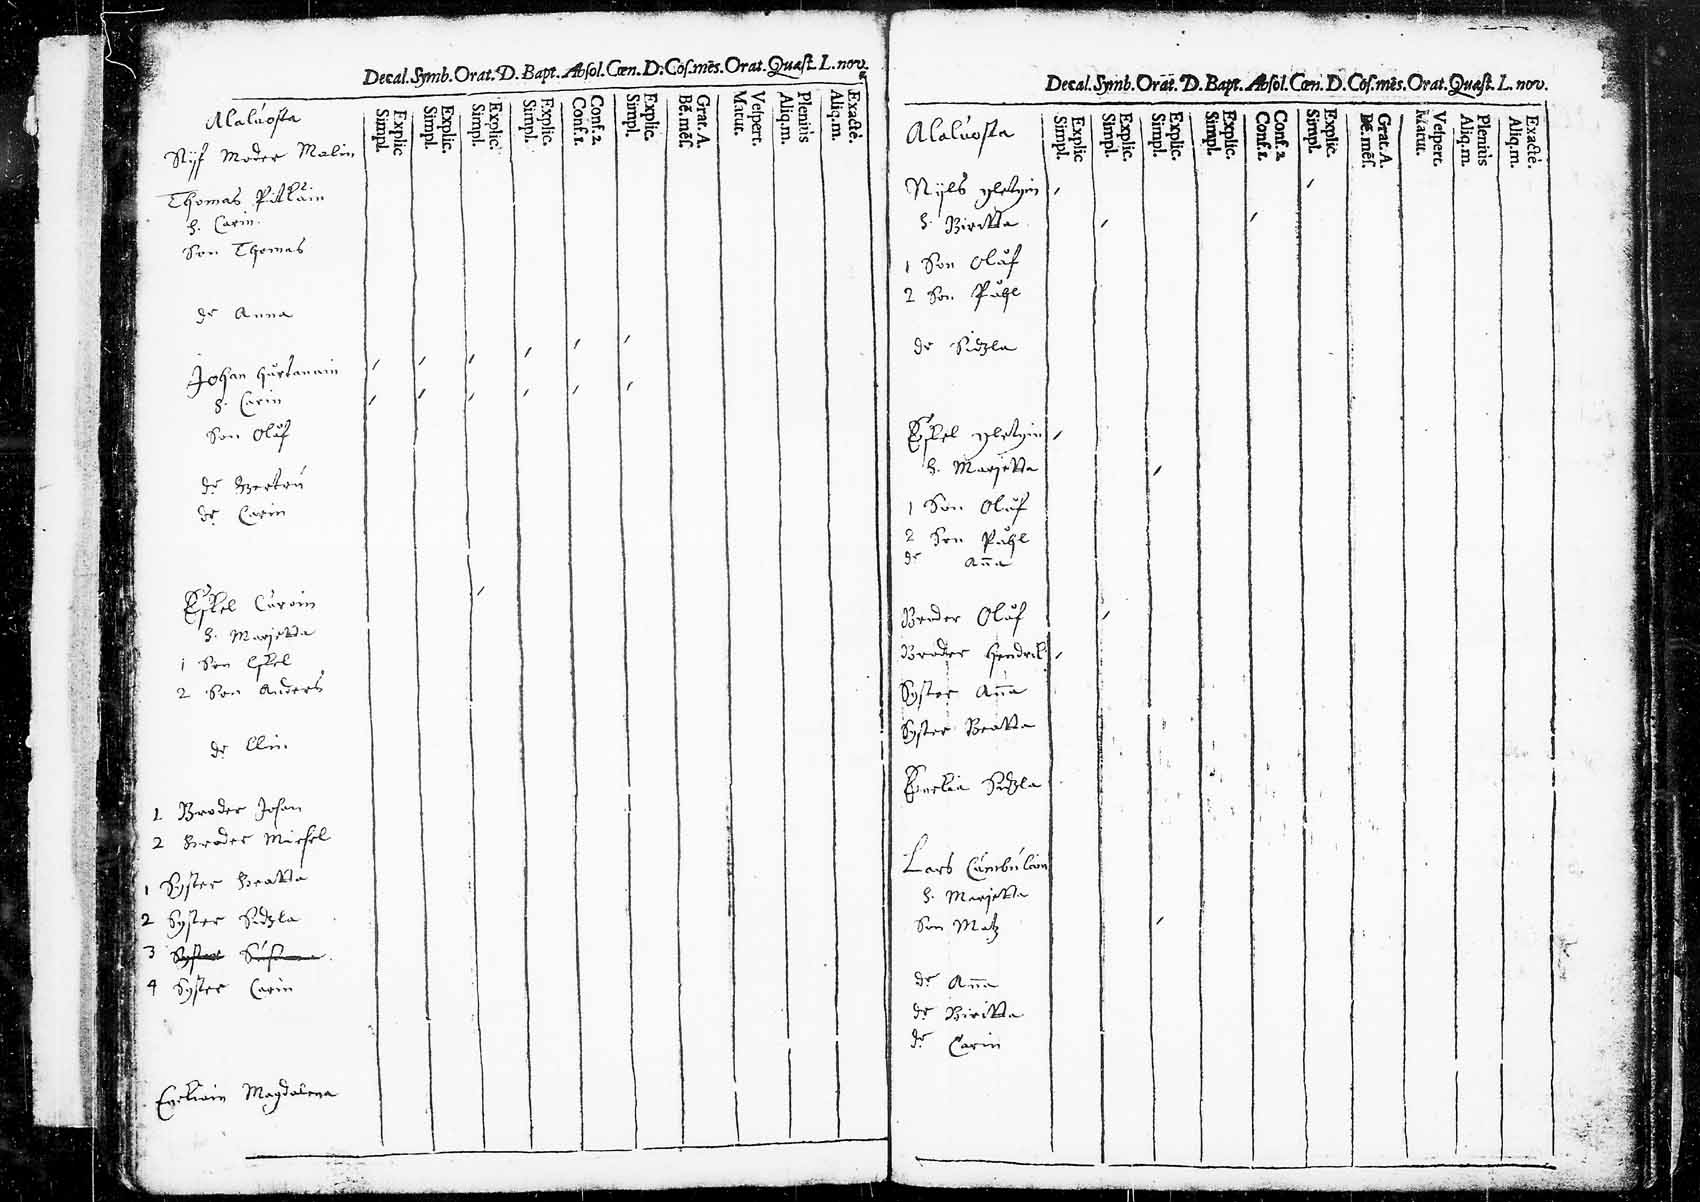 Decal. Symb. Orat. D. Bapt. Absol. Cœn. D. Cōf. mēs. Orat. Quæst. L. nov.
Explic Simpl. Explic. Simpl. Explic. Simpl. Explic. Simpl. Conf. 2. Conf. 1. Explic. Simpl. Grat. A. Bē. mēs. Vespert. Matut. Pleniùs Aliq. m. Exactè. Aliq. m.
Alalúosta
Moder Malin
Thomas
h. Carin
Son Thomas
dr Anna
Johan
h. Carin
Son Olůf
dr
dr Carin
Eskel
h. Marjetta
1 Son Eskel
2 Son Anders
dr Elin
1 Broder Johan
2 Broder Michel
1 Syster Beatta
2 Syster Sidzla
3 Syster
4 Syster Carin
Magdalena
Decal. Symb. Orat. D. Bapt. Absol. Cœn. D. Cōf. mēs. Orat. Quæst. L. nov.
Explic Simpl. Explic. Simpl. Explic. Simpl. Explic. Simpl. Conf. 2 Conf. 1. Explic. Simpl. Grat. A. Bē. mēs. Vespert. Matut. Pleniùs Aliq. m. Exactè. Aliq. m.
Alalúosta
Nijls yletyin
h. Biritta
1 Son Olůf
2 Son Påhl
dr Sidzla
Eskel yletyin
h. Marjetta
1 Son Olůf
2 Son Påhl
dr Aña
Broder Olůf
Broder Hendrik
Syster Aña
Syster Beatta
Sidzla
Lars
h. Marjetta
Son Matz
dr Aña
dr Biritta
dr Carin